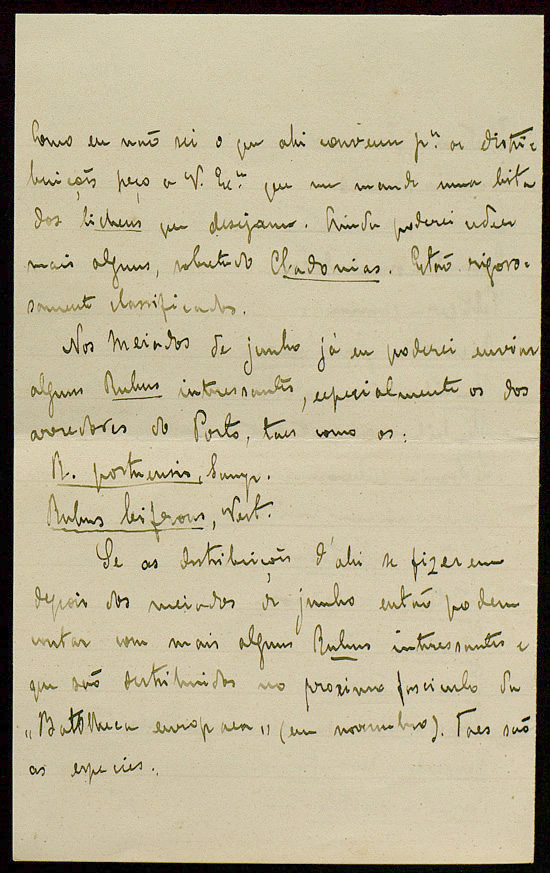 Como eu não sei o que ahi convem pª as distri=
buições peço a V. Exª que me mande uma lista
dos lichens que desejam. Ainda poderei ceder
mais alguns, sobretudo Cladonias. Estão rigoro=
samente classificados.
Nos meiados de junho já eu poderei enviar
alguns Rubus interessantes, especialmente os dos
arredores do Porto, taes como os:
R. portuensis, Samp.
Rubus, West.
Se as destribuições d'ahi se fizerem
depois dos meiados de junho então podem
contar com mais alguns Rubus interessantes e
que são destribuidos no proximo fasciculo da
"Batotheca europaea" (em novembro). Taes são
as especies: